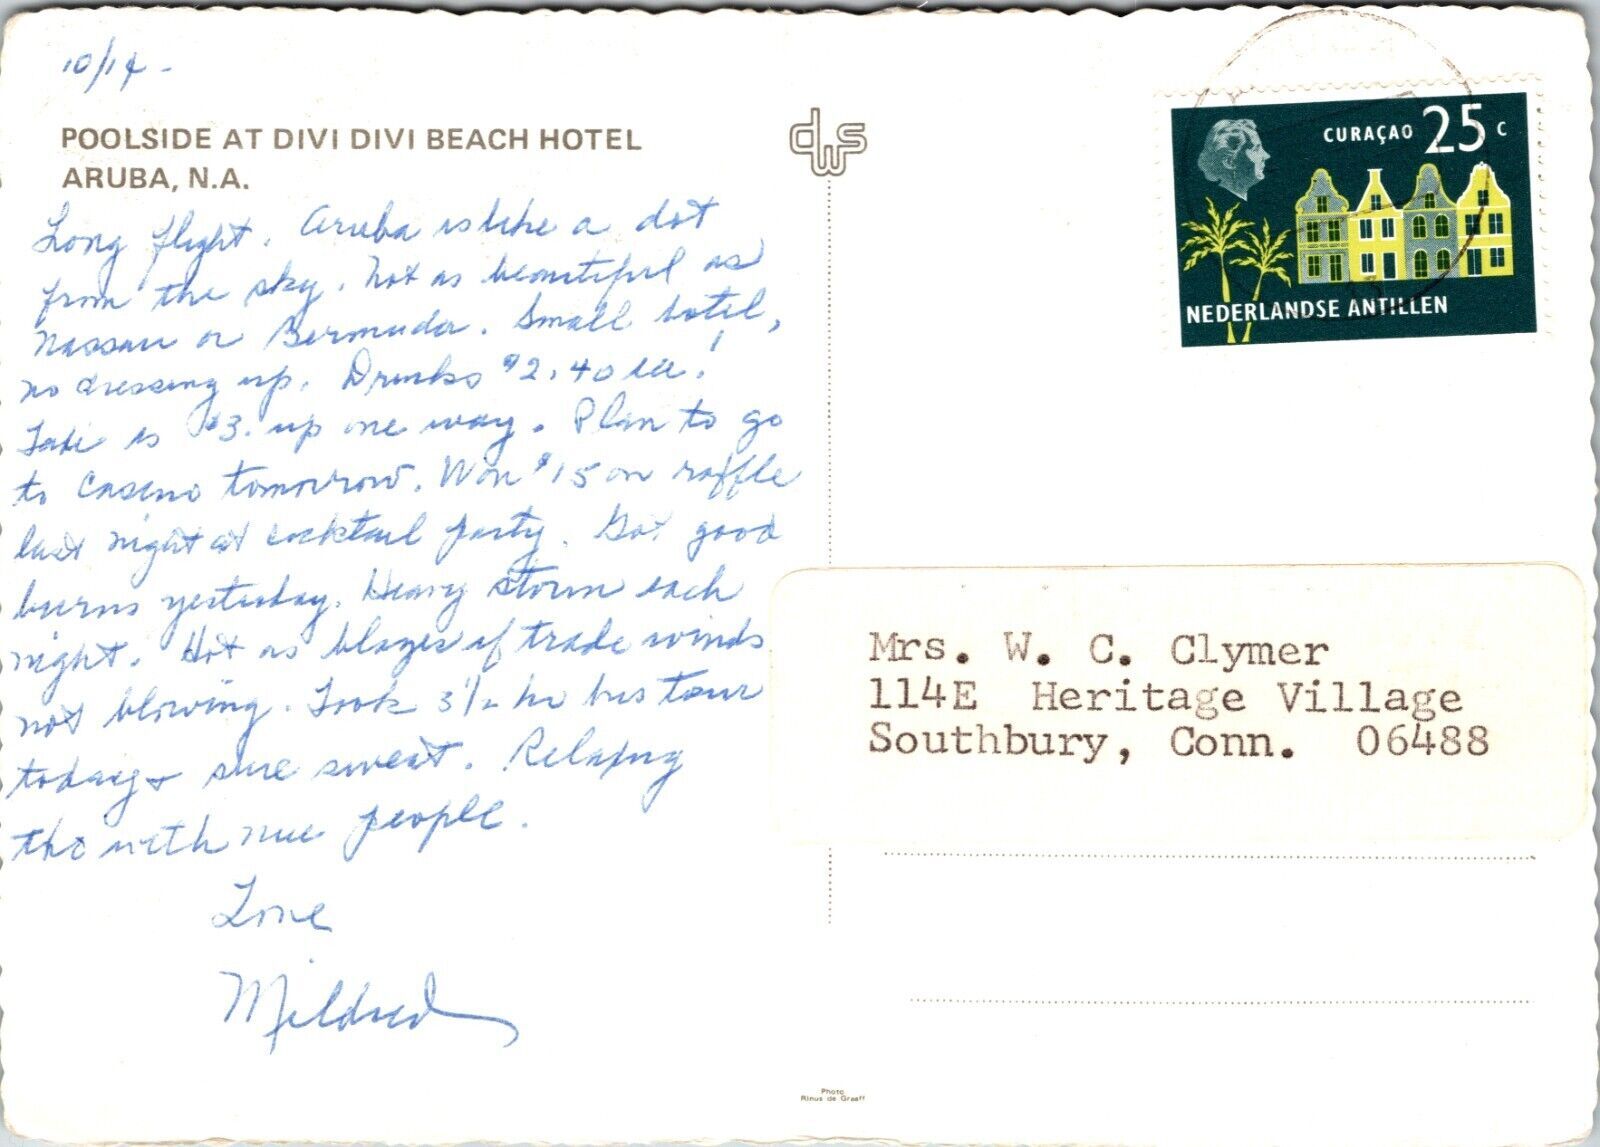 10/14 -
POOLSIDE AT DIVI DIVI BEACH HOTEL
ARUBA, N.A.
Long flight. Aruba is like a dot
from the sky. Not as beautiful as
Nassau or Bermuda. Small hotel,
no dressing up. Drinks $2.40 ea!
Taxi is $3. up one way. Plan to go
to Casino tomorrow. Won $15 on raffle
last night at cocktail party. Got good
burns yesterday. Heavy storm each
night. Hot as blazes if trade winds
not blowing. Took 3 1/2 hr bus tour
today & sure sweat. Relaxing
tho with nice people.
Love
Mildred
dws
CURAÇAO 25 c
NEDERLANDSE ANTILLEN
Mrs. W. C. Clymer
114E Heritage Village
Southbury, Conn. 06488
Photo
Rinus de Graaff